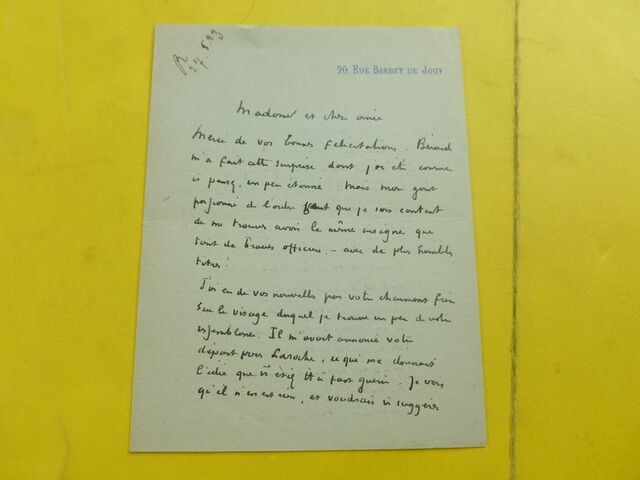 R
27.5.29
90. RUE BARBET DE JOUY
Madame et cher amie
Merci de vos bonnes félicitations. Bérard
m'a fait cette surprise dont j'ai été comme
vs pensez, un peu étonné. Mais mon gout
passionné de l'ordre fait que je sois content
de me trouver avoir le même insigne que
tant de braves officiers, – avec de plus humbles
titres!
J'ai eu de vos nouvelles par votre charmant frère
sur le visage duquel je trouve un peu de votre
ressemblance. Il m'avait annoncé votre
départ pour Laroche, ce qui me donnait
l'idée que vs étiez tt à fait guérie. Je vois
qu'il n'en est rien, et voudrais vs suggérer